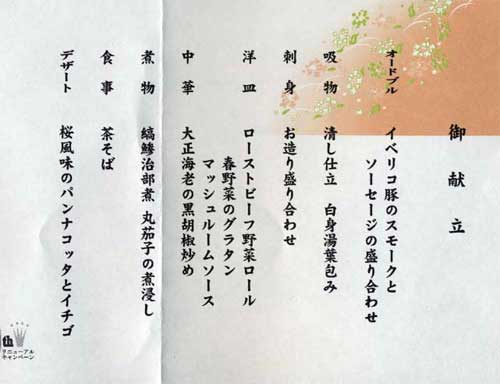 御献立
オードブル イベリコ豚のスモークと
ソーセージの盛り合わせ
吸物 清し仕立 白身湯葉包み
刺身 お造り盛り合わせ
洋皿 ローストビーフ野菜ロール
春野菜のグラタン
マッシュルームソース
中華 大正海老の黒胡椒炒め
煮物 縞鯵治部煮 丸茄子の煮浸し
食事 茶そば
デザート 桜風味のパンナコッタとイチゴ
th
リニューアル
キャンペーン